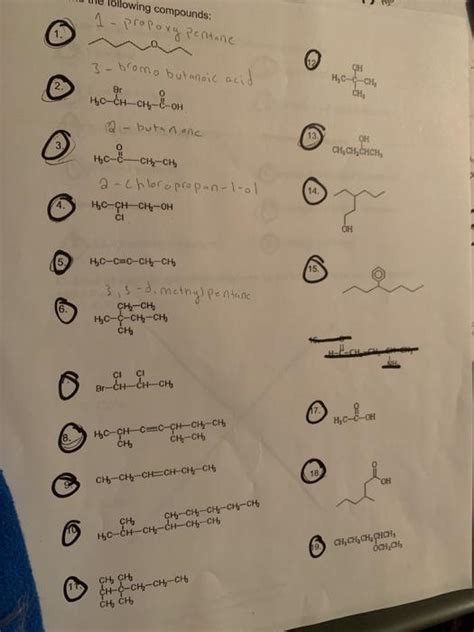 the following compounds:
1 - propoxy pentane
1.
O
3 - bromo butanoic acid
2.
Br O
H₃C-CH-CH₂-C-OH
2 - butanone
3.
O
H₃C-C-CH₂-CH₃
2 - chloropropan-1-ol
4.
H₃C-CH-CH₂-OH
Cl
5.
H₃C-C≡C-CH₂-CH₃
3,3-dimethylpentane
6.
CH₂-CH₃
H₃C-C-CH₂-CH₃
CH₃
7.
Cl Cl
Br-CH-CH-CH₃
8.
H₃C-CH-C=C-CH-CH₂-CH₃
CH₃ CH₂-CH₃
9.
CH₃-CH₂-CH=CH-CH₂-CH₃
10.
CH₃ CH₂-CH₂-CH₂-CH₂-CH₃
H₃C-CH-CH₂-CH-CH₂-CH₃
11.
CH₃ CH₃
CH-C-CH₂-CH₂-CH₃
CH₃ CH₃
12.
OH
H₃C-C-CH₃
CH₃
13.
OH
CH₃CH₂CHCH₃
14.
OH
15.
17.
O
H₃C-C-OH
18.
O
OH
19.
CH₃CH₂CH₂CHCH₃
OCH₂CH₃